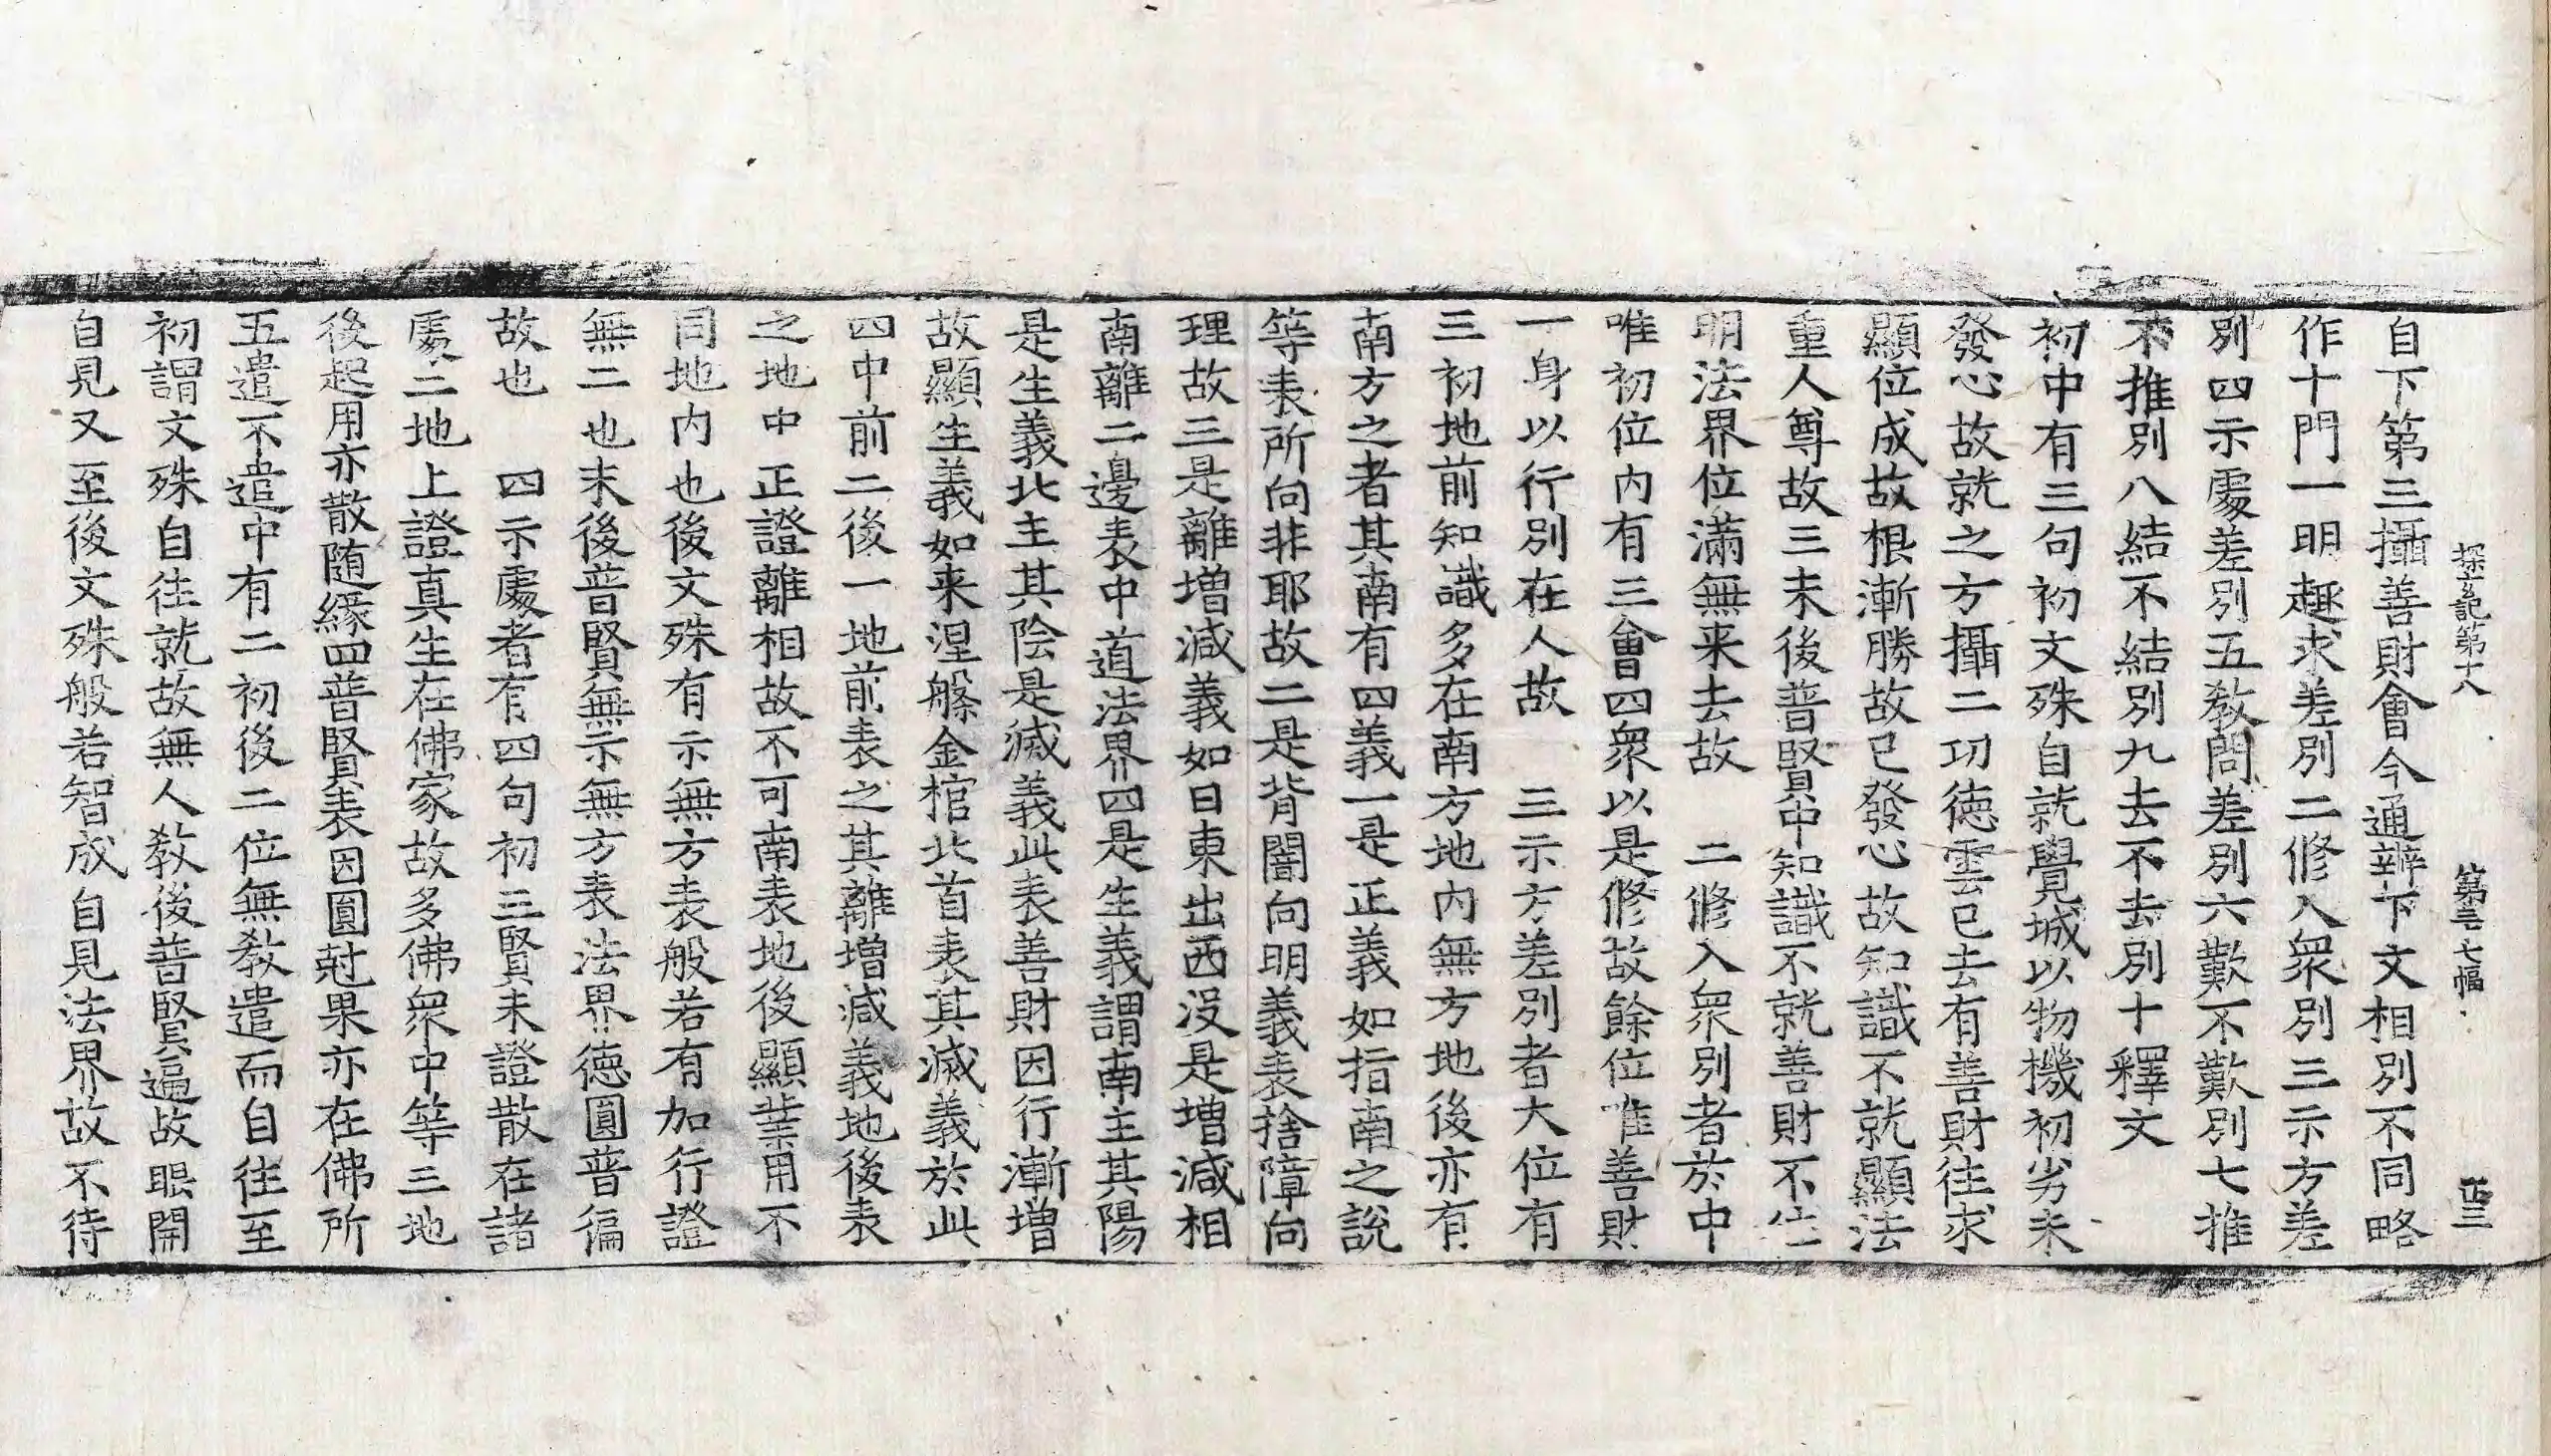 探玄記第十八　第三七幅
自下第三攝善財會今通辨下文相別不同略
作十門一明趣求差別二修入衆別三示方差
別四示處差別五教問差別六歎不歎別七推
不推別八結不結別九去不去別十釋文
初中有三句初文殊自就覺城以物機初劣未
發心故就之方攝二功德雲已去有善財往求
顯位成故根漸勝故已發心故知識不就顯法
重人尊故三末後普賢中知識不就善財不往
明法界位滿無来去故　二修入衆別者於中
唯初位内有三會四衆以是修故餘位唯善財
一身以行別在人故　三示方差別者大位有
三初地前知識多在南方地内無方地後亦有
南方之者其南有四義一是正義如指南之說
等表所向非耶故二是背闇向明義表捨障向
理故三是離增減義如日東出西没是增減相
南離二邊表中道法界四是生義謂南主其陽
是生義北主其陰是滅義此表善財因行漸增
故顯生義如来涅槃金棺北首表其滅義於此
四中前二後一地前表之其離增減義地後表
之地中正證離相故不可南表地後顯業用不
同地内也後文殊有示無方表般若有加行證
無二也末後普賢無示無方表法界德圓普徧
故也　四示處者有四句初三賢未證散在諸
處二地上證真生在佛家故多佛衆中等三地
後起用亦散随緣四普賢表因圓尅果亦在佛所
五遣不遣中有二初後二位無教遣而自往至
初謂文殊自往就故無人教後普賢遍故眼開
自見又至後文殊般若智成自見法界故不待